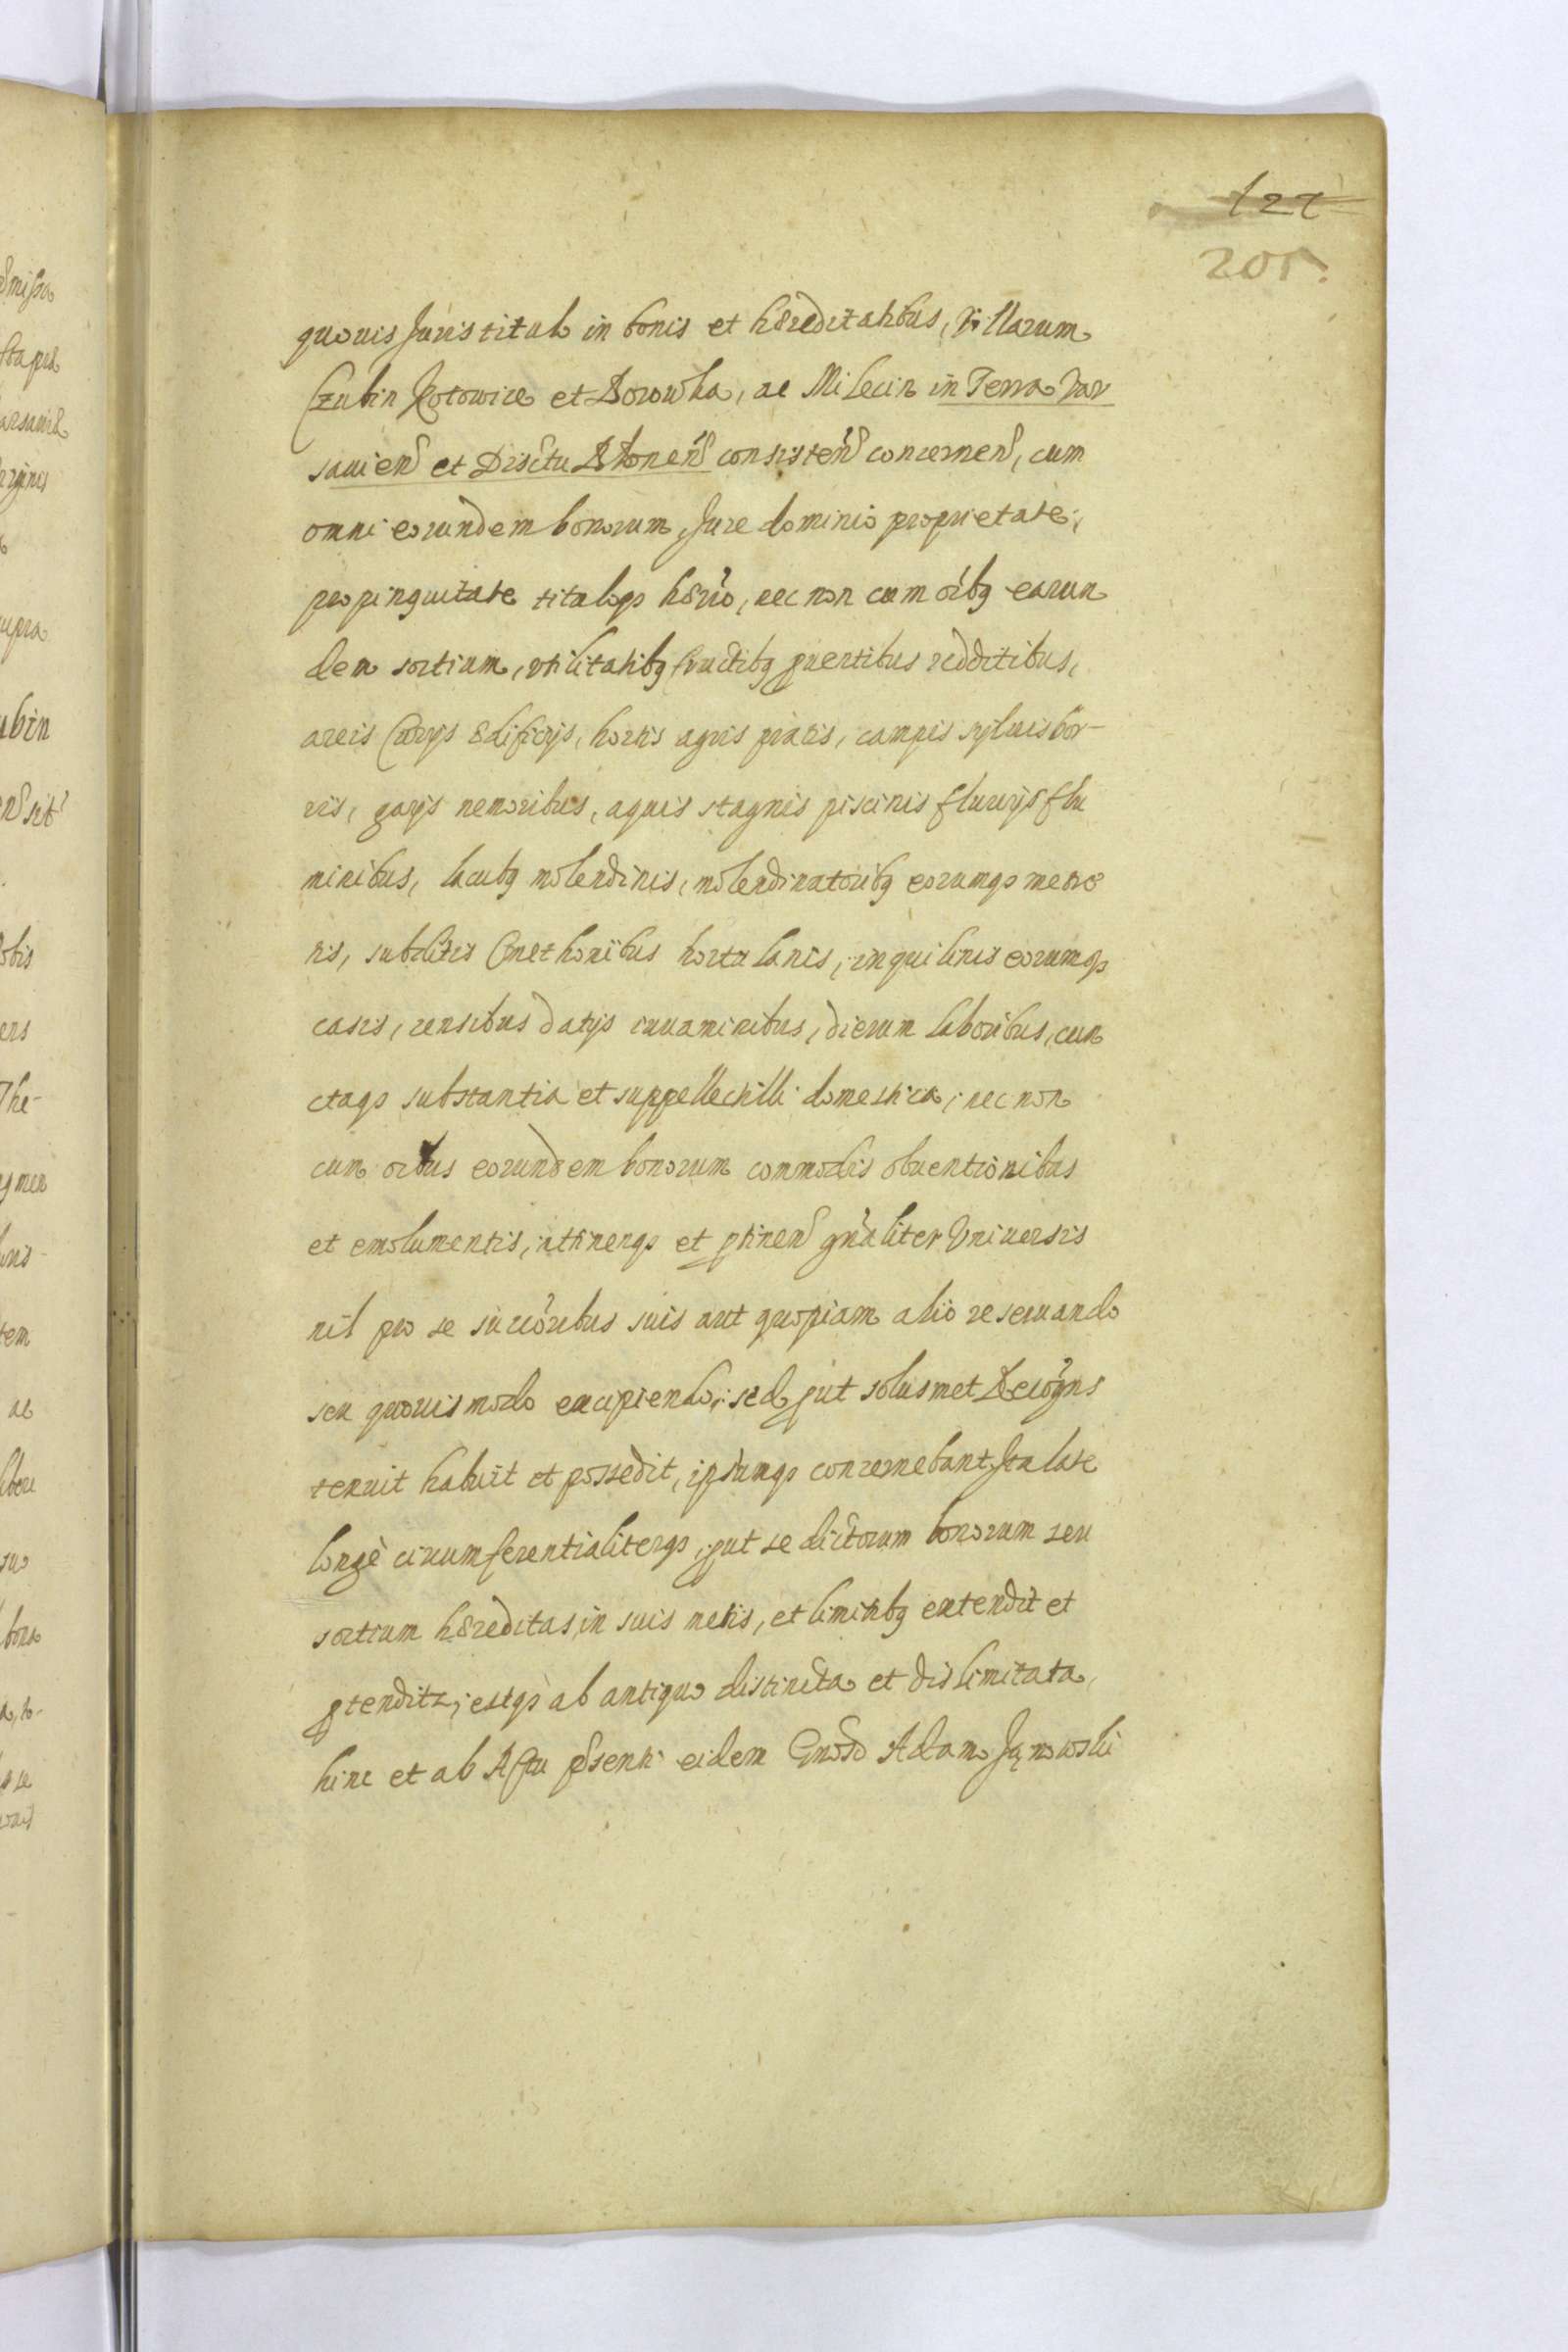 121
205.
quouis Juris titulo in bonis et hæreditatibus, Villarum
Czubin Kotowice et Borowka, ac Milecin in Terra Var
sauien et Districtu Blonen consisten concernen, cum
omni eorundem bonorum Jure dominio proprietate,
propinquitate tituloqs hærio, nec non cum oibq earun
dem sortium, vtilitatibq fructibq puentibus redditibus,
areis Curijs ædificijs, hortis agris pratis, campis syluis bor-
ris, gaijs nemoribus, aquis stagnis piscinis fluuijs flu
minibus, lacubq molendinis, molendinatoribq eorumqs mensu
ris, subditis Cmethonibus hortulanis, inquilinis eorumqs
casis, censibus datijs iuuaminibus, dierum laboribus, cun
ctaqs substantia et suppellectilli domestica, nec non
cum oibus eorundem bonorum commodis obuentionibus
et emolumentis, attinenqs et ptinen gnaliter Vniuersis
nil pro se succoribus suis aut quopiam alio reseruando
seu quouismodo excipiendo, sed put solusmet Recogns
tenuit habuit et possedit, ipsumqs concernebant, Ita late
longè circumferentialiterqs, put se dictorum bonorum seu
sortium hæreditas, in suis metis, et limitibq extendit et
ptendit, estqs ab antiquo distincta et dislimitata,
hinc et ab Actu psenti eidem Gnoso Adamo